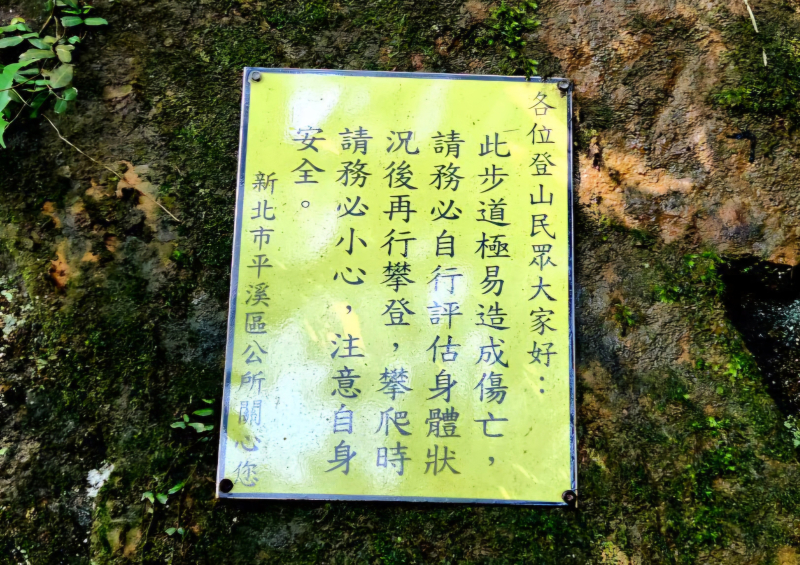 各位登山民眾大家好：
此步道極易造成傷亡，
請務必自行評估身體狀
況後再行攀登，攀爬時
請務必小心，注意自身
安全。
新北市平溪區公所關心您